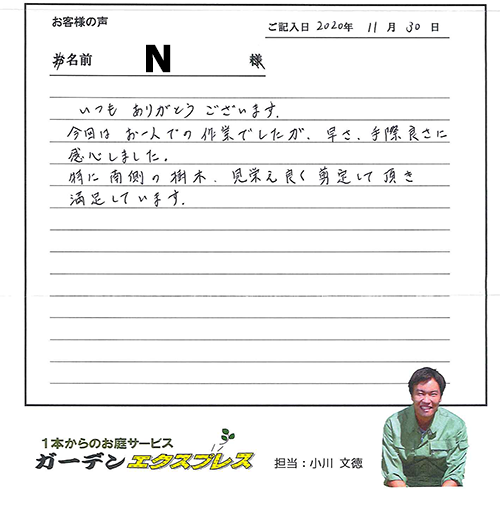 お客様の声
ご記入日 2020年 11月 30日
お名前 N 様
いつも ありがとう ございます.
今回は お一人での 作業でしたが、早さ、手際良さに
感心しました。
特に 南側の 樹木、見栄え良く 剪定して 頂き
満足しています.
1本からのお庭サービス
ガーデンエクスプレス
担当：小川 文徳